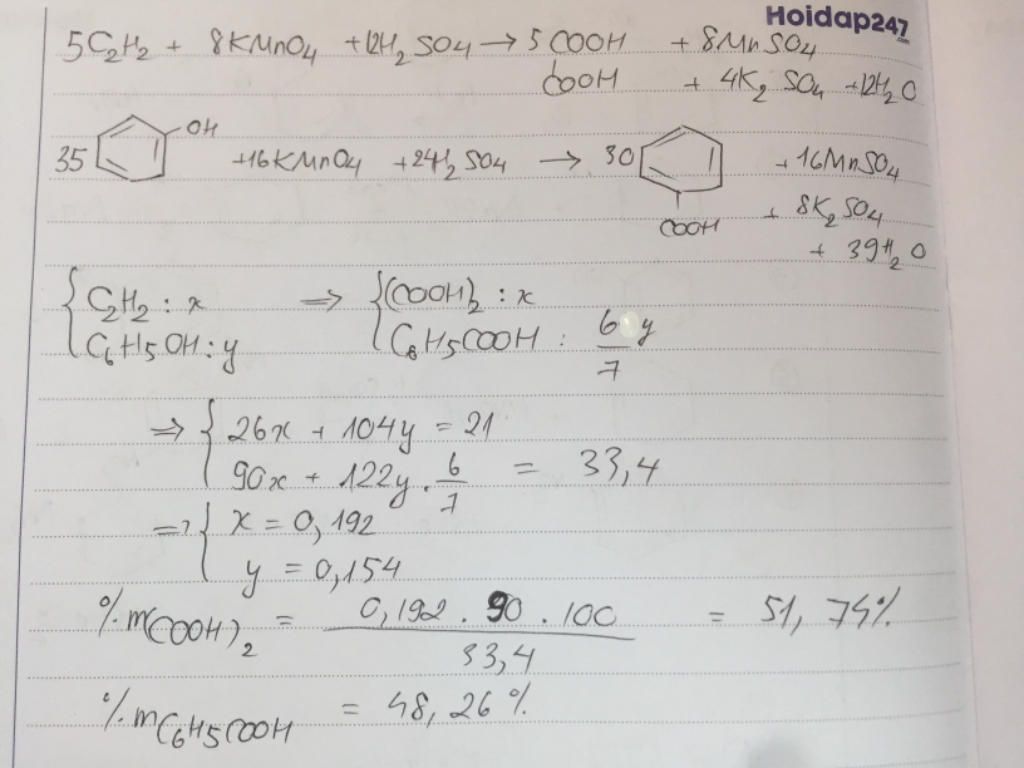 Hoidap247
5C₂H₂ + 8KMnO₄ + 12H₂SO₄ → 5 COOH + 8MnSO₄
COOH + 4K₂SO₄ + 12H₂O
OH
35 + 16KMnO₄ + 24H₂SO₄ → 30 + 16MnSO₄
COOH + 8K₂SO₄
+ 39H₂O
{ C₂H₂ : x ⇒ { (COOH)₂ : x
C₆H₅OH : y C₆H₅COOH : 6y/7
⇒ { 26x + 104y = 21
90x + 122y . 6/7 = 33,4
⇒ { x = 0,192
y = 0,154
%m(COOH)₂ = 0,192 . 90 . 100 / 33,4 = 51,74%
%mC₆H₅COOH = 48,26%